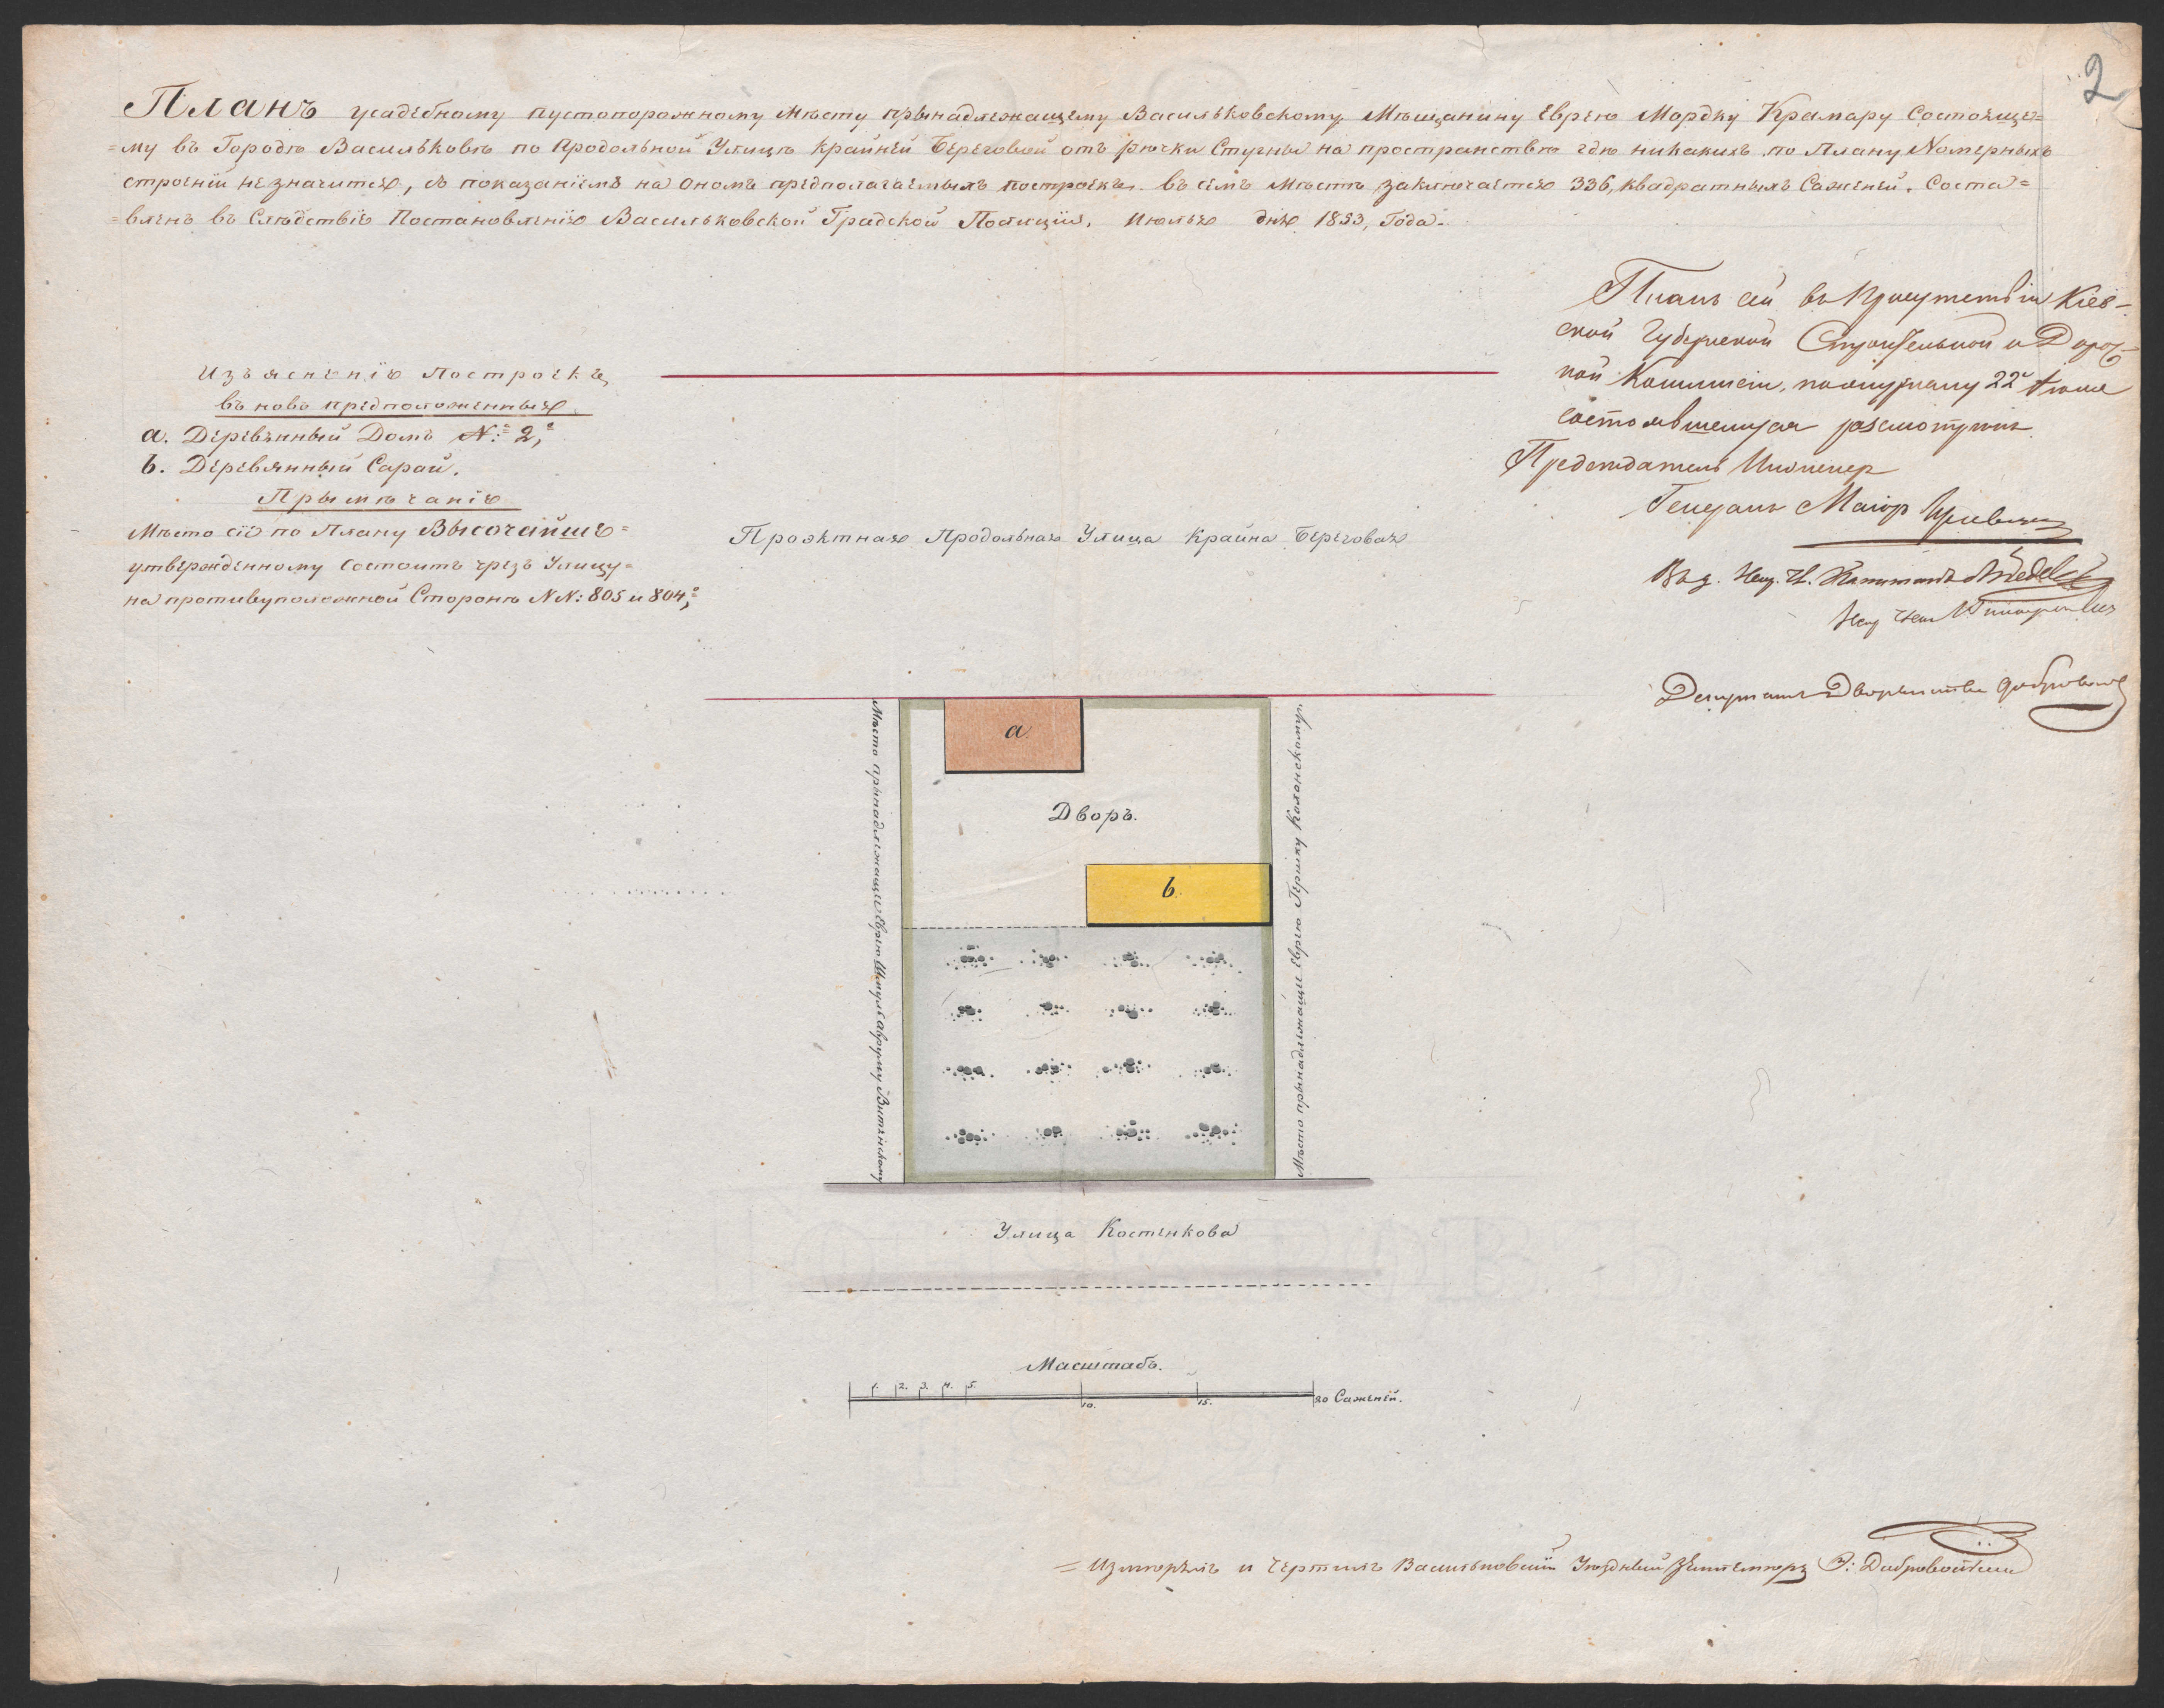 2
Планъ усадебному пустопорожному мѣсту прынадлежащему Васильковскому Мѣщанину Еврею Мордку Крамару Состоящее=
=му въ Городѣ Васильковѣ по Продольной Улицѣ Крайней Береговой отъ рѣчки Стугны на пространствѣ гдѣ никакихъ по Плану Номерныхъ
строеній не значится, съ показаніемъ на ономъ предполагаемыхъ построекъ. въ семъ мѣстѣ заключается 336, квадратныхъ Саженей. Соста=
=вленъ въ Слѣдствіе Постановленія Васильковской Градской Полиціи, Июлья дня 1853, Года.
Планъ сей въ Присутствіи Кіев-
ской Губернской Строительной и Дорож-
ной Коммисіи, по журналу 22 Іюля
состоявшемуся разсмотренъ.
Председатель Инженер
Генералъ Маіор
Депутатъ Дворянства
Изъясненіе Построекъ
въ ново предположенныхъ
a. Деревянный Домъ №: 2,
b. Деревянный Сарай.
Прымѣчаніе
Мѣсто сіе по Плану Высочайше=
утвержденному состоитъ чрезъ Улицу=
на противуположной Сторонѣ NN: 805 и 804,
Проэктная Продольная Улица Крайна Береговая
Мѣсто прынадлежащее Еврею Шмуль Авруму
Мѣсто прынадлежащее Еврею Гершку Колонскому.
a.
Дворъ.
b.
Улица Костенкова
Масштабъ.
1. 2. 3. 4. 5.
10. 15. 20 Саженей.
= Измѣрялъ и чертилъ Васильковскій Уѣздный Землемѣръ